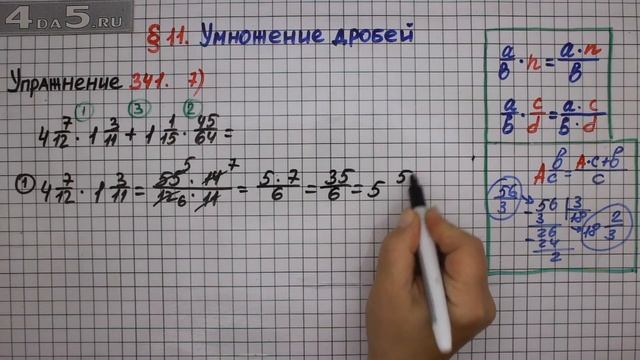 4DA5.RU
§ 11. Умножение дробей
Упражнение 341. 7)
① ③ ②
4 7/12 · 1 3/11 + 1 1/15 · 45/64 =
① 4 7/12 · 1 3/11 = 55 5 · 14 7 / 12 6 · 11 = 5 · 7/6 = 35/6 = 5 5
a/b · n = a · n/b
a/b · c/d = a · c/b · d
A b/c = A · c + b/c
56/3
56 | 3
- 3 | 18
26
- 24
2
18 2/3